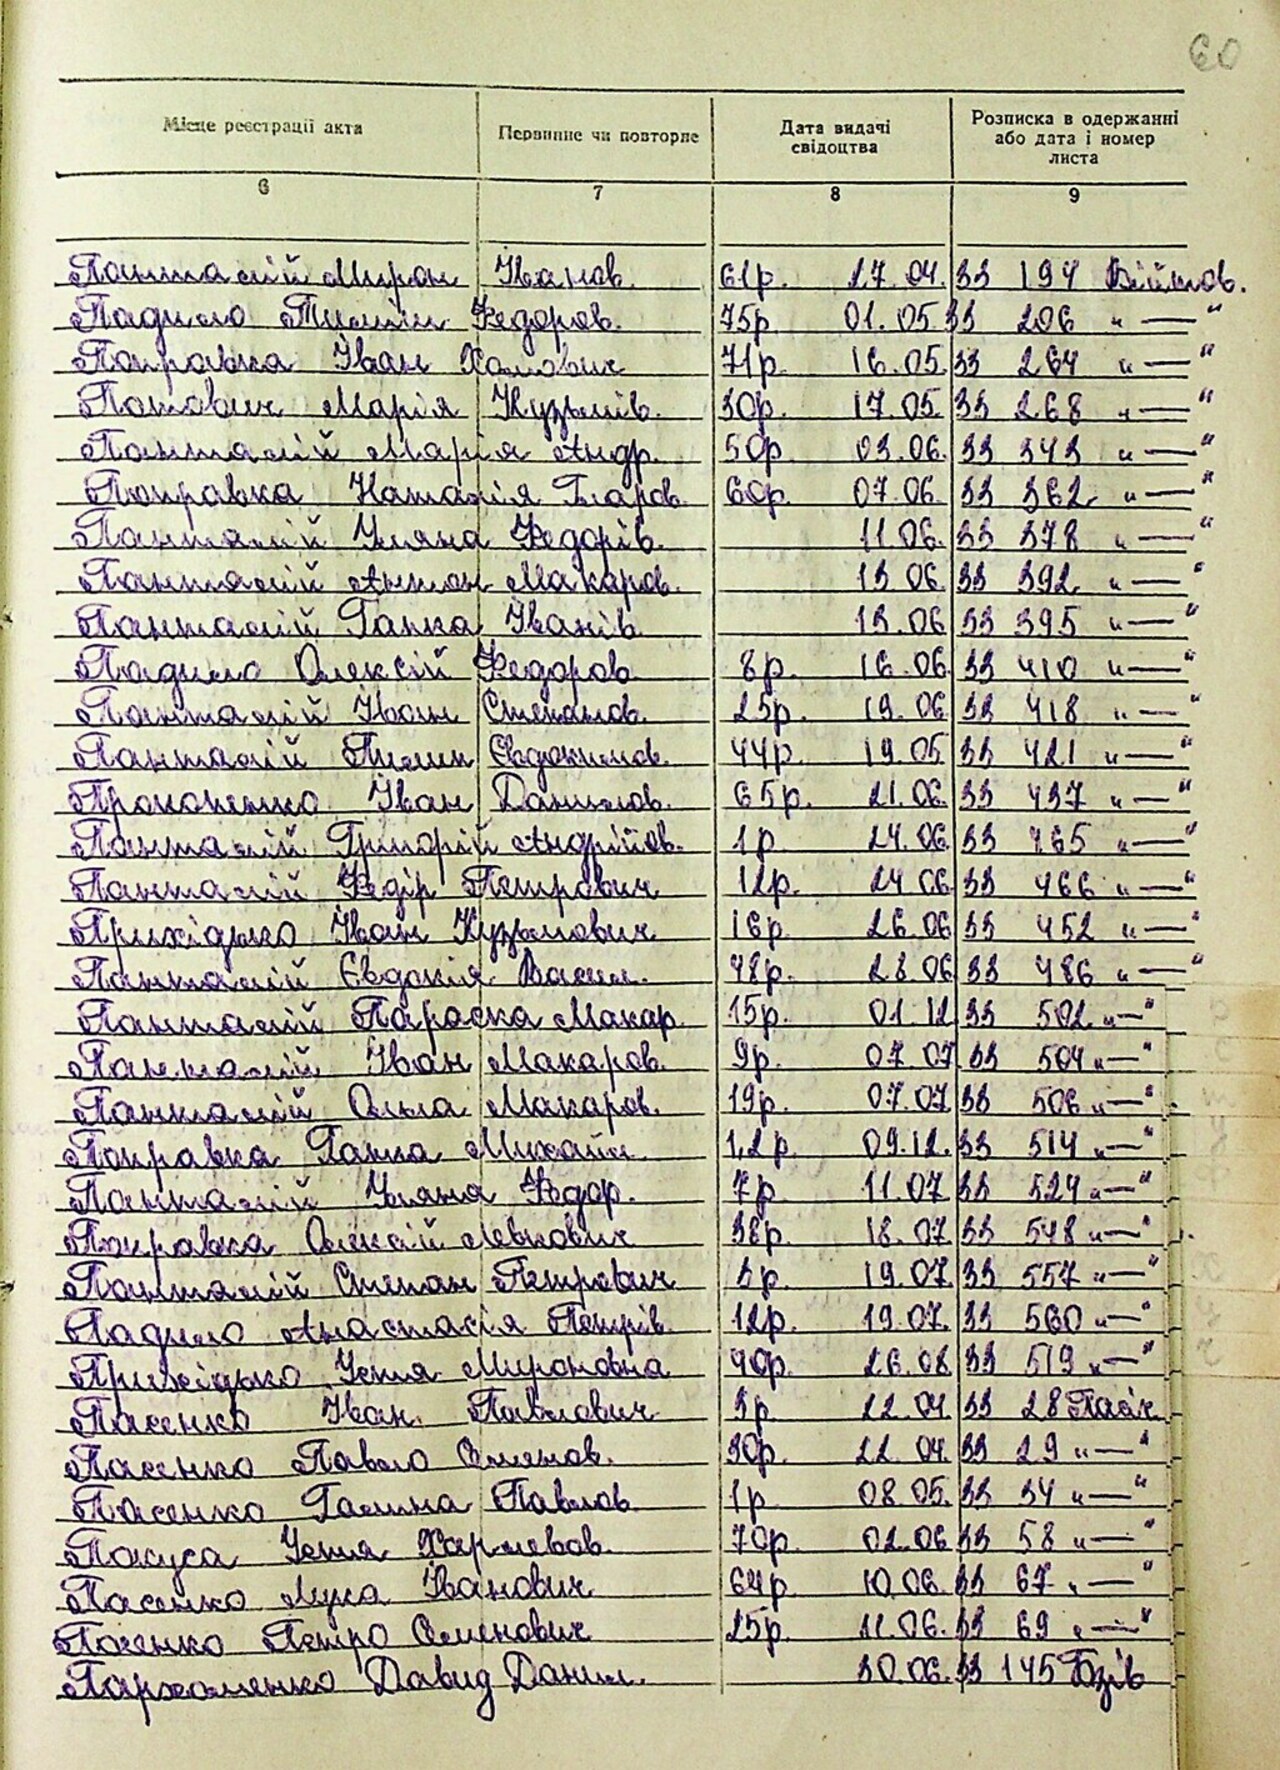 60
Місце реєстрації акта Первинне чи повторне Дата видачі свідоцтва Розписка в одержанні або дата і номер листа
6 7 8 9
Панталій Мирон Іванов. 61р. 27.04. 33 194 Війтов.
Падило Тиміш Федоров. 75р. 01.05 33 206 "—"
Поправка Іван Хомович 71р. 16.05. 33 264 "—"
Потович Марія Кузьмів. 30р. 17.05. 33 268 "—"
Панталій Марія Андр. 50р. 03.06. 33 343 "—"
Поправка Наталія Гларов. 60р. 07.06. 33 362 "—"
Панталій Уляна Федорів. 11.06. 33 378 "—"
Панталій Антон Макаров. 13.06. 33 392 "—"
Панталій Ганка Іванів. 13.06 33 395 "—"
Падило Олексій Федоров 8р. 16.06. 33 410 "—"
Панталій Іван Степанов. 25р. 19.06 33 418 "—"
Панталій Пилип Євдокимов. 44р. 19.05 33 421 "—"
Прокопенко Іван Данилов. 65р. 21.06. 33 437 "—"
Панталій Григорій Андрійов. 1р. 24.06. 33 465 "—"
Панталій Федір Петрович 12р. 24.06 33 466 "—"
Прихідько Іван Кузьмович 16р. 26.06 33 452 "—"
Панталій Євдокія Васил. 48р. 28.06 33 486 "—"
Панталій Параска Макар. 15р. 01.12 33 502 "—"
Панталій Іван Макаров. 9р. 07.07 33 504 "—"
Панталій Ольга Макаров. 19р. 07.07 33 506 "—"
Поправка Ганна Михайл. 1,2р. 09.12. 33 514 "—"
Панталій Уляна Федор. 7р. 11.07 33 524 "—"
Поправка Олексій Левкович 38р. 18.07 33 548 "—"
Панталій Степан Петрович 5р. 19.07 33 557 "—"
Падило Анастасія Петрів. 12р. 19.07. 33 560 "—"
Прихідько Устя Миронівна 40р. 26.08 33 519 "—"
Пасенко Іван Павлович 3р. 22.04 33 28 Пасіч.
Пасенко Павло Семенов. 30р. 22.04. 33 29 "—"
Пасенко Галина Павлов. 1р. 08.05. 33 34 "—"
Покуса Устя Харлевов. 70р. 02.06 33 58 "—"
Пасенко Лука Іванович 64р. 10.06. 33 67 "—"
Пасенко Петро Семенович 25р. 11.06. 33 69 "—"
Пархоменко Давид Данил. 30.06. 33 145 Бзів